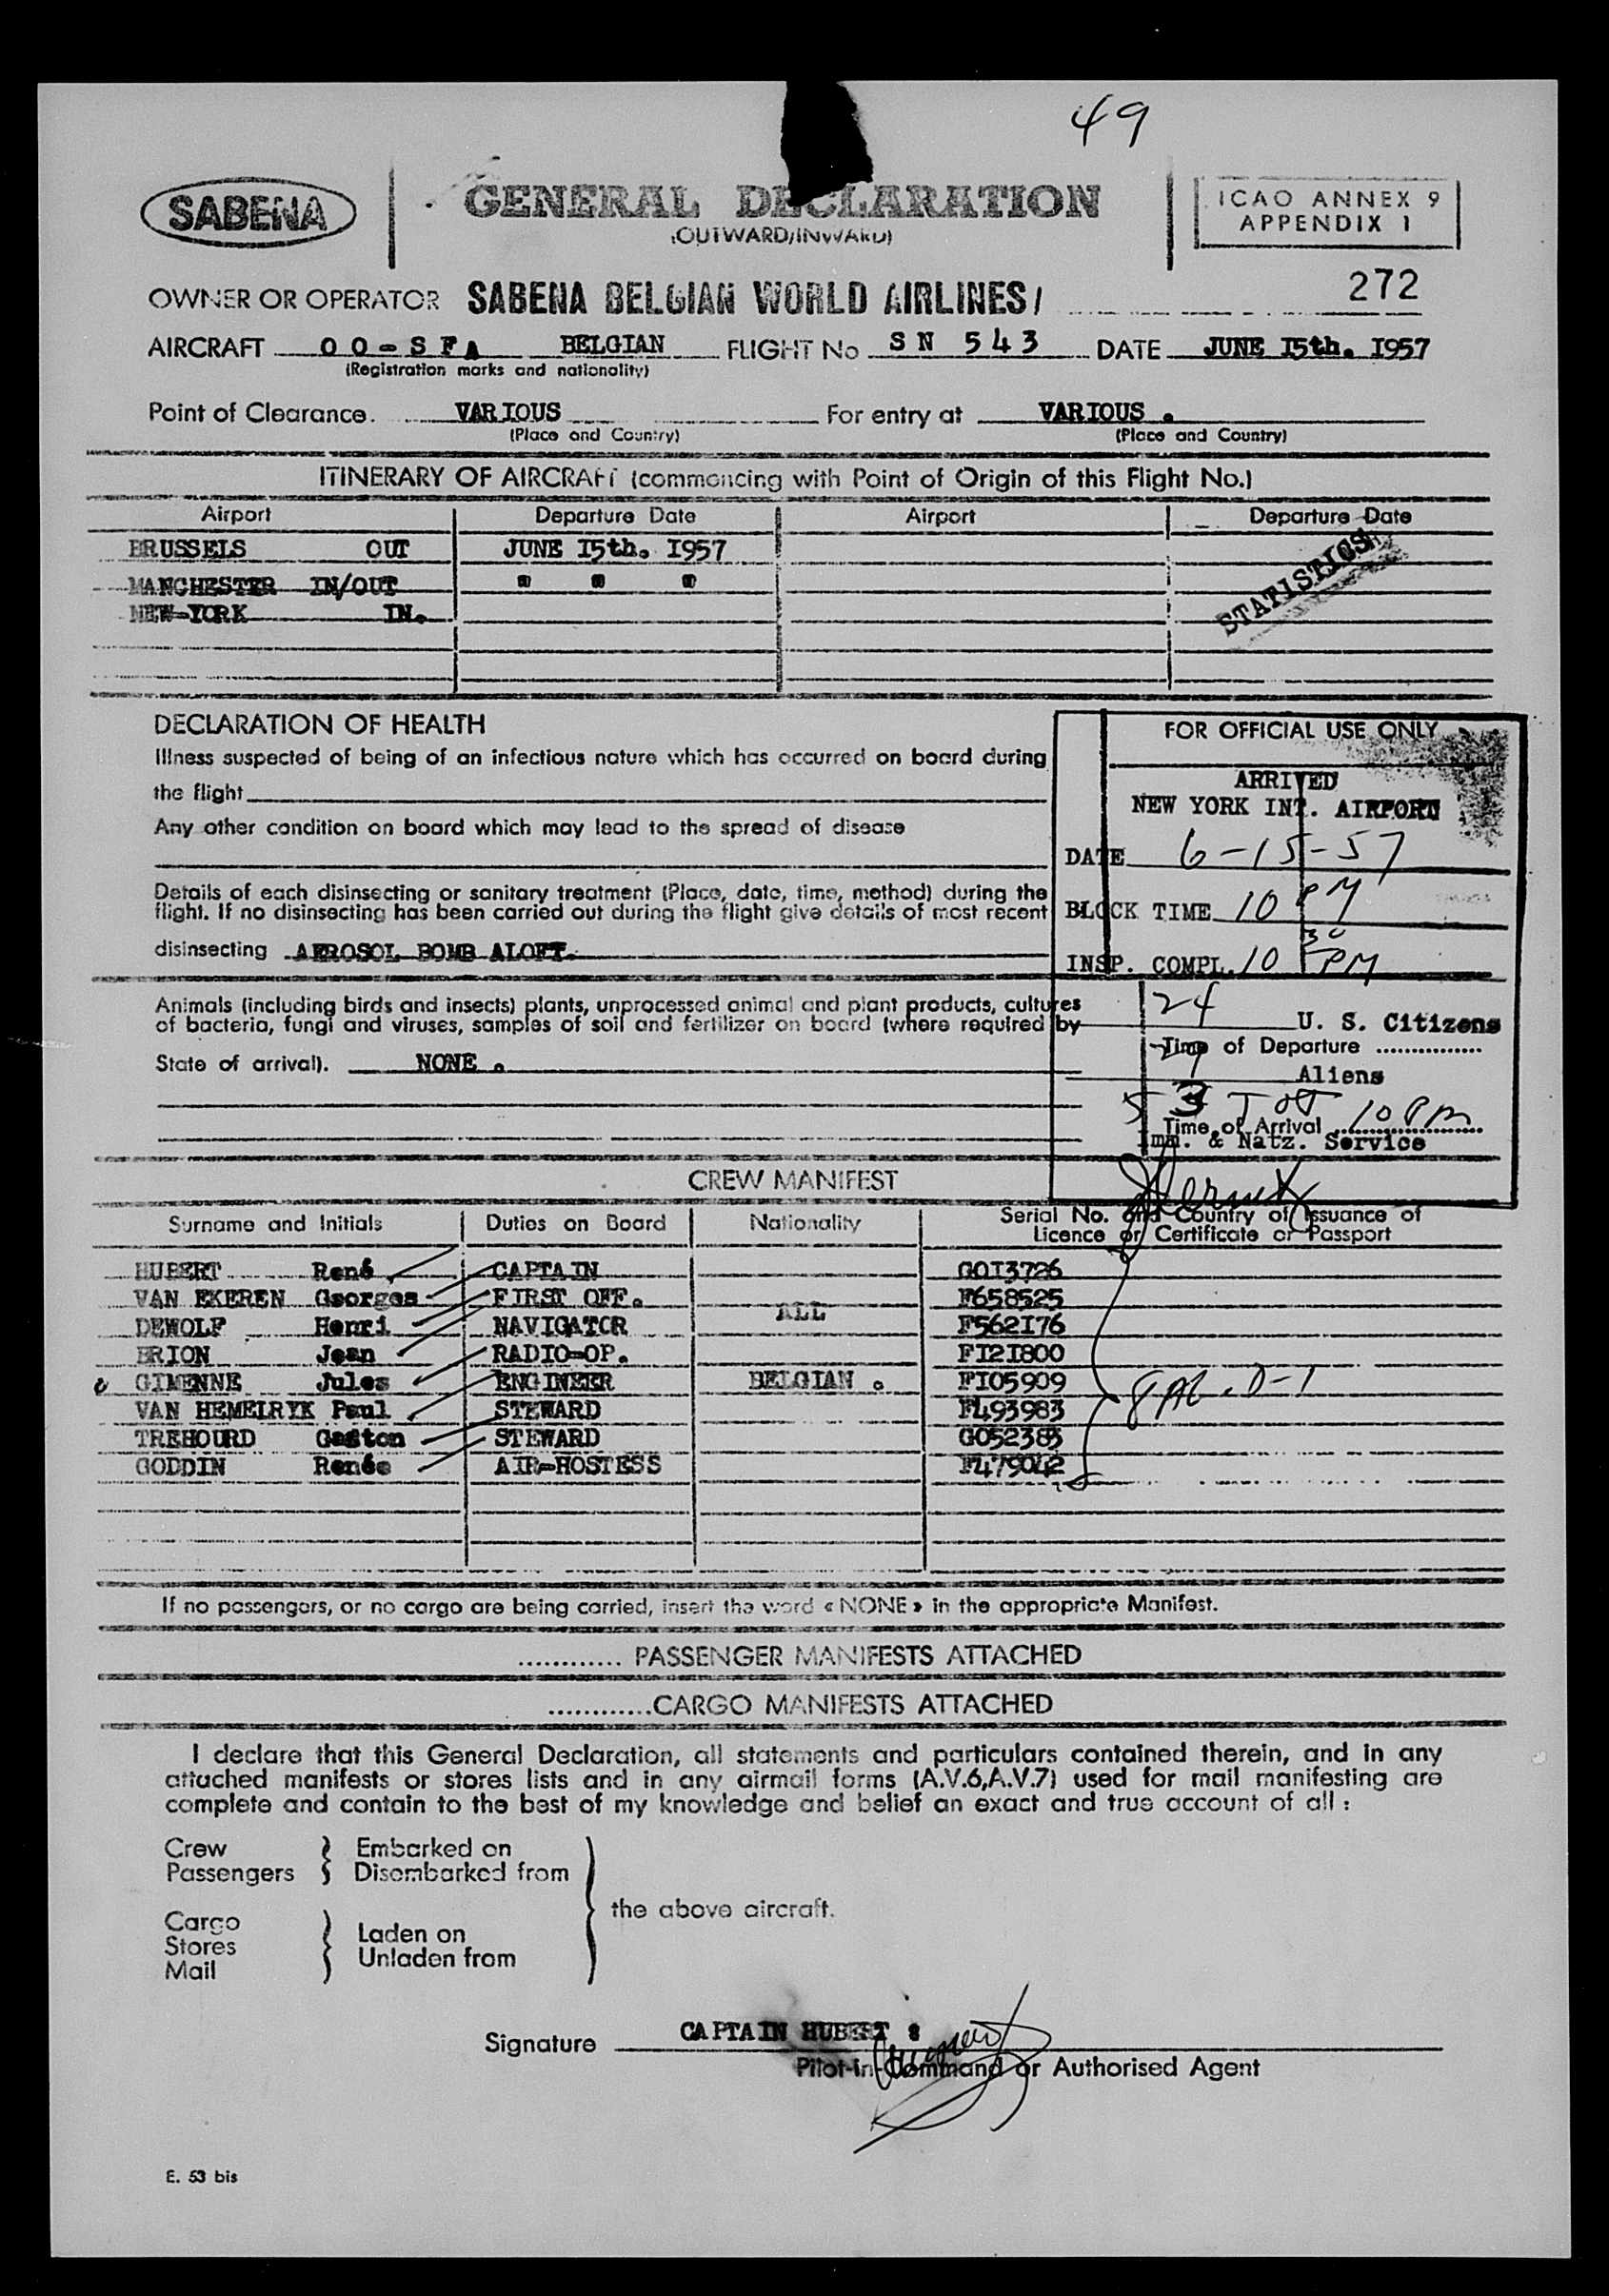 49
SABENA
GENERAL DECLARATION
(OUTWARD/INWARD)
ICAO ANNEX 9
APPENDIX 1
272
OWNER OR OPERATOR SABENA BELGIAN WORLD AIRLINES/
AIRCRAFT OO-SFA BELGIAN FLIGHT No SN 543 DATE JUNE I5th. I957
(Registration marks and nationality)
Point of Clearance. VARIOUS For entry at VARIOUS .
(Place and Country) (Place and Country)
ITINERARY OF AIRCRAFT (commencing with Point of Origin of this Flight No.)
Airport Departure Date Airport Departure Date
BRUSSELS OUT JUNE I5th. I957
MANCHESTER IN/OUT " " "
NEW-YORK IN.
STATISTICS
DECLARATION OF HEALTH
Illness suspected of being of an infectious nature which has occurred on board during
the flight
Any other condition on board which may lead to the spread of disease
Details of each disinsecting or sanitary treatment (Place, date, time, method) during the
flight. If no disinsecting has been carried out during the flight give details of most recent
disinsecting AEROSOL BOMB ALOFT.
Animals (including birds and insects) plants, unprocessed animal and plant products, cultures
of bacteria, fungi and viruses, samples of soil and fertilizer on board (where required by
State of arrival). NONE .
FOR OFFICIAL USE ONLY
ARRIVED
NEW YORK INT. AIRPORT
DATE 6-15-57
BLOCK TIME 10 PM
INSP. COMPL. 10 30 PM
24 U. S. Citizens
Time of Departure ...............
29 Aliens
53 Tot
Time of Arrival 10 PM
Imm. & Natz. Service
CREW MANIFEST
Surname and Initials Duties on Board Nationality Serial No. and Country of Issuance of
Licence or Certificate or Passport
HUBERT René CAPTAIN GOI3726
VAN EKEREN Georges FIRST OFF. F658525
ALL
DEWOLF Henri NAVIGATOR F562I76
BRION Jean RADIO-OP. FI2I800
GIMENNE Jules ENGINEER BELGIAN . FI05909
VAN HEMELRYK Paul STEWARD F493983
TREHOURD Gaston STEWARD G052383
GODDIN Renée AIR-HOSTESS F479042
If no passengers, or no cargo are being carried, insert the word «NONE» in the appropriate Manifest.
............ PASSENGER MANIFESTS ATTACHED
............CARGO MANIFESTS ATTACHED
I declare that this General Declaration, all statements and particulars contained therein, and in any
attached manifests or stores lists and in any airmail forms (A.V.6,A.V.7) used for mail manifesting are
complete and contain to the best of my knowledge and belief an exact and true account of all :
Crew Embarked on
Passengers Disembarked from
the above aircraft.
Cargo
Stores Laden on
Mail Unladen from
Signature CAPTAIN HUBERT :
Pilot-in-Command or Authorised Agent
E. 53 bis